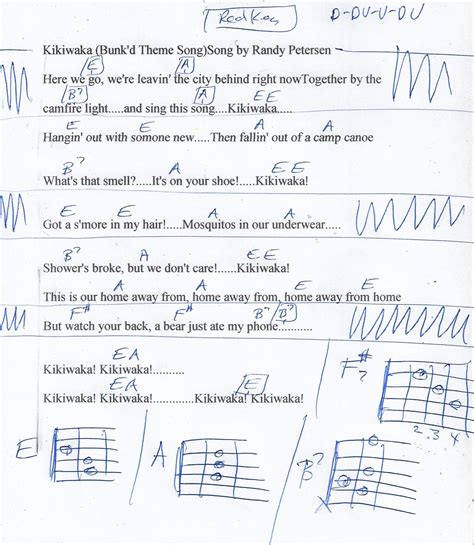 Red Key D-DU-U-DU
Kikiwaka (Bunk'd Theme Song)Song by Randy Petersen
E A
Here we go, we're leavin' the city behind right nowTogether by the
B7 A EE
camfire light.....and sing this song....Kikiwaka.....
E E A A
Hangin' out with somone new.....Then fallin' out of a camp canoe
B7 A EE
What's that smell?.....It's on your shoe!.....Kikiwaka!
E E A A
Got a s'more in my hair!.....Mosquitos in our underwear.....
B7 A EE
Shower's broke, but we don't care!.....Kikiwaka!
A A E E
This is our home away from, home away from, home away from home
F# F# B7 B7
But watch your back, a bear just ate my phone...........
EA
Kikiwaka! Kikiwaka!..........
EA E
Kikiwaka! Kikiwaka!...........Kikiwaka! Kikiwaka!
F#7
2 3 4
E A B7
X